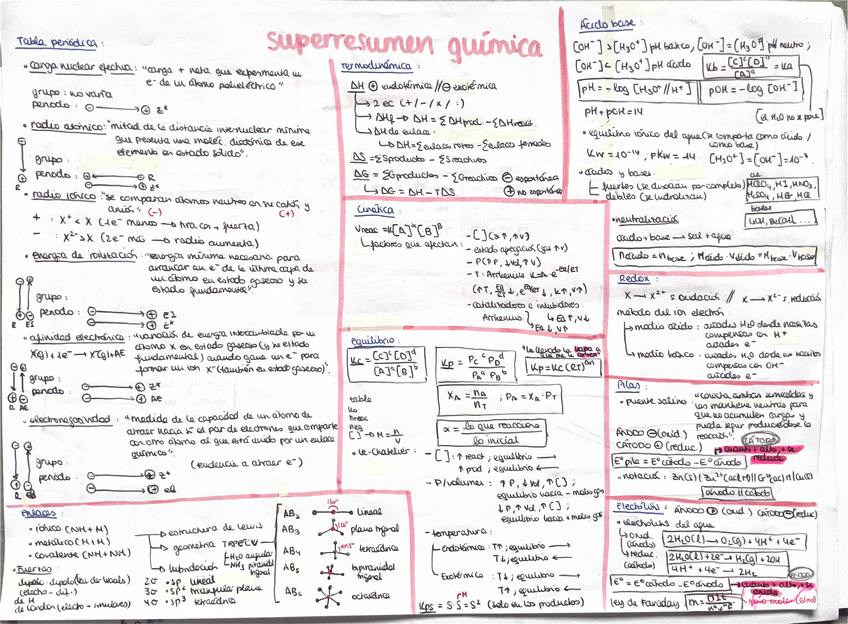 superresumen química
Tabla periódica:
• carga nuclear efectiva: "carga + neta que experimenta un
e⁻ de un átomo polielectrico"
grupo: no varía
periodo: ⊖→⊕ z*
• radio atómico: "mitad de la distancia internuclear mínima
que presenta una moléc. diatómica de ese
elemento en estado sólido".
grupo:
periodo: ⊕ ← ⊖ R
⊖ → ⊕ z*
R
• radio iónico: "se comparan átomos neutros en su catión y
anión". (-) (+)
+ : X⁺ < X (1e⁻ menos → atrae con + fuerza)
- : X²⁻ > X (2e⁻ más → radio aumenta)
• Energía de ionización: "energía mínima necesaria para
arrancar un e⁻ de la última capa de
un átomo en estado gaseoso y su
estado fundamental"
grupo:
periodo: ⊖ → ⊕ EI
⊖ → ⊕ z*
R EI
• afinidad electrónica: "variación de energía intercambiada por un
átomo X en estado gaseoso (s su estado
X(g) + 1e⁻ → X⁻(g) + AE
fundamental) cuando gana un e⁻ para
formar un ion X⁻ (también en estado gaseoso)".
grupo:
periodo: ⊖ → ⊕ z*
⊖ → ⊕ AE
R AE
• electronegatividad: "medida de la capacidad de un átomo de
atraer hacia sí el par de electrones que comparte
con otro átomo al que está unido por un enlace
químico".
grupo: (tendencia a atraer e⁻)
periodo: ⊖ → ⊕ z*
⊖ → ⊕ el
R el
Enlaces:
• iónico (NH + M)
• metálico (M + M)
• covalente (NH + NH)
→ estructura de Lewis
→ geometría TRPECV
H₂O angular
NH₃ piramidal trigonal
→ hibridación
• Fuerzas:
2σ • sp lineal
3σ • sp² triangular plana
4σ • sp³ tetraédrica
de H
AB₂ 180° lineal
AB₃ 120° plana trigonal
AB₄ tetraédrica
AB₅ bipiramidal trigonal
AB₆ octaédrica
Termodinámica:
ΔH ⊕ endotérmica // ⊖ exotérmica
→ 2 ec (+/-/x/:)
→ ΔHf → ΔH = ΣΔHprod - ΣΔHreact.
→ ΔH de enlace.
ΔH = ΣEnlaces rotos - ΣEnlaces formados
ΔS = ΣSproductos - ΣSreactivos
ΔG = ΣGproductos - ΣGreactivo ⊖ espontánea
→ ΔG = ΔH - TΔS ⊕ no espontánea
Cinética:
Vreac = K[A]ᵅ[B]ᵝ
factores que afectan:
- [ ] (a ↑, ↑ v)
- estado agregación (gas ↑ v)
- P (↑P, ↓Vol, ↑ v)
- T: Arrhenius K=A·e^-Ea/RT
- catalizadores e inhibidores:
Arrhenius
↳ Ea ↑, v↓
Ea ↓, v↑
Equilibrio:
Kc = [C]ᶜ[D]ᵈ / [A]ᵃ[B]ᵇ
Kp = Pcᶜ P_Dᵈ / P_Aᵃ P_Bᵇ
Kp = Kc(RT)^Δn
tabla
no
nreac
neq
[ ] → M = n/v
X_A = n_A/n_T ; P_A = X_A · P_T
α = lo que reacciona / lo inicial
• Le-Chatelier:
- [ ]: ↑ react, equilibrio →
↑ prod, equilibrio ←
- P/volumen: ↑ P, ↓ Vol, ↑ [ ] ;
equilibrio hacia - moles gas
↓ P, ↑ Vol, ↓ [ ] ;
equilibrio hacia + moles gas
- temperatura:
Endotérmica: T↑; equilibrio →
T↓; equilibrio ←
Exotérmica: T↓; equilibrio →
T↑; equilibrio ←
Kps = S·S = S² (solo en los productos)
Ácido base:
[OH⁻] > [H₃O⁺] pH básico; [OH⁻] = [H₃O⁺] pH neutro;
[OH⁻] < [H₃O⁺] pH ácido
Kb = [C]ᶜ[D]ᵈ / [A]ᵃ = Ka
pH = -log [H₃O⁺ // H⁺]
pOH = -log [OH⁻]
pH + pOH = 14
[el H₂O no se pone]
• equilibrio iónico del agua (se comporta como ácido /
como base)
Kw = 10⁻¹⁴, pKw = 14 [H₃O⁺] = [OH⁻] = 10⁻⁷
• ácidos y bases:
fuertes (se disocian por completo)
débiles (se hidrolizan)
HClO₄, HI, HNO₃,
H₂SO₄, HBr, HCl
bases
• neutralización
ácido + base → sal + agua
nácido = nbase ; Mácido · Vácido = Mbase · Vbase
Redox:
X → X²⁺ s. oxidación // X → X²⁻ s. reducción
método del ion electrón:
→ medio ácido: añades H₂O donde necesitas
compensas con H⁺
añades e⁻
→ medio básico: añades H₂O donde no necesitas
compensas con OH⁻
añades e⁻
Pilas:
• puente salino: "conecta ambas semiceldas y
las mantiene neutras para
que no acumulen cargas y
pueda seguir produciéndose la
reacción".
ÁNODO ⊖ (oxid.)
CÁTODO ⊕ (reduc.)
CÁTODO
cuanto + alto, + se
reduce
E°pila = E°cátodo - E°ánodo
ánodo || cátodo
Electrólisis: ÁNODO ⊕ (oxid.) CÁTODO ⊖ (reduc)
• electrólisis del agua
→ Oxid. (ánodo) 2H₂O(l) → O₂(g) + 4H⁺ + 4e⁻
→ reduc. (cátodo) 2H₂O(l) + 2e⁻ → H₂(g) + 2OH
4H⁺ + 4e⁻ → 2H₂
E° = E°cátodo - E°ánodo
ÁNODO
cuanto + alto, + se
oxida
Ley de Faraday